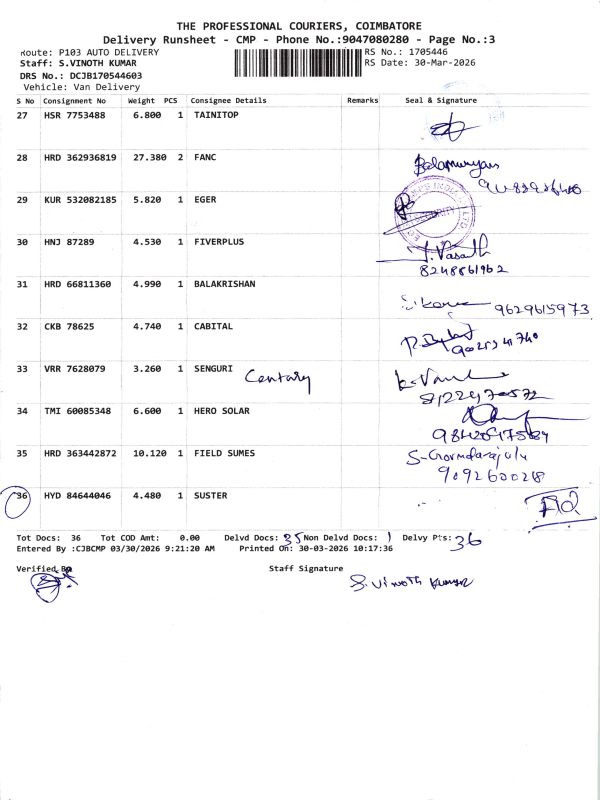 THE PROFESSIONAL COURIERS, COIMBATORE
Delivery Runsheet - CMP - Phone No.:9047080280 - Page No.:3
Route: P103 AUTO DELIVERY
RS No.: 1705446
Staff: S.VINOTH KUMAR
RS Date: 30-Mar-2026
DRS No.: DCJB170544603
Vehicle: Van Delivery
S No Consignment No Weight PCS Consignee Details Remarks Seal & Signature
27 HSR 7753488 6.800 1 TAINITOP
28 HRD 362936819 27.380 2 FANC
29 KUR 532082185 5.820 1 EGER
SECURITY
30 HNJ 87289 4.530 1 FIVERPLUS
8248861962
31 HRD 66811360 4.990 1 BALAKRISHAN
9629615973
32 CKB 78625 4.740 1 CABITAL
33 VRR 7628079 3.260 1 SENGURI
Century
34 TMI 60085348 6.600 1 HERO SOLAR
35 HRD 363442872 10.120 1 FIELD SUMES
S-Govindarajulu
36 HYD 84644046 4.480 1 SUSTER
Tot Docs: 36 Tot COD Amt: 0.00 Delvd Docs: 35 Non Delvd Docs: 1 Delvy Pts: 36
Entered By :CJBCMP 03/30/2026 9:21:20 AM Printed On: 30-03-2026 10:17:36
Verified By
Staff Signature
S. Vinoth Kumar